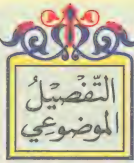 التَّفْصِيْلُ
الْمَوْضُوعِي